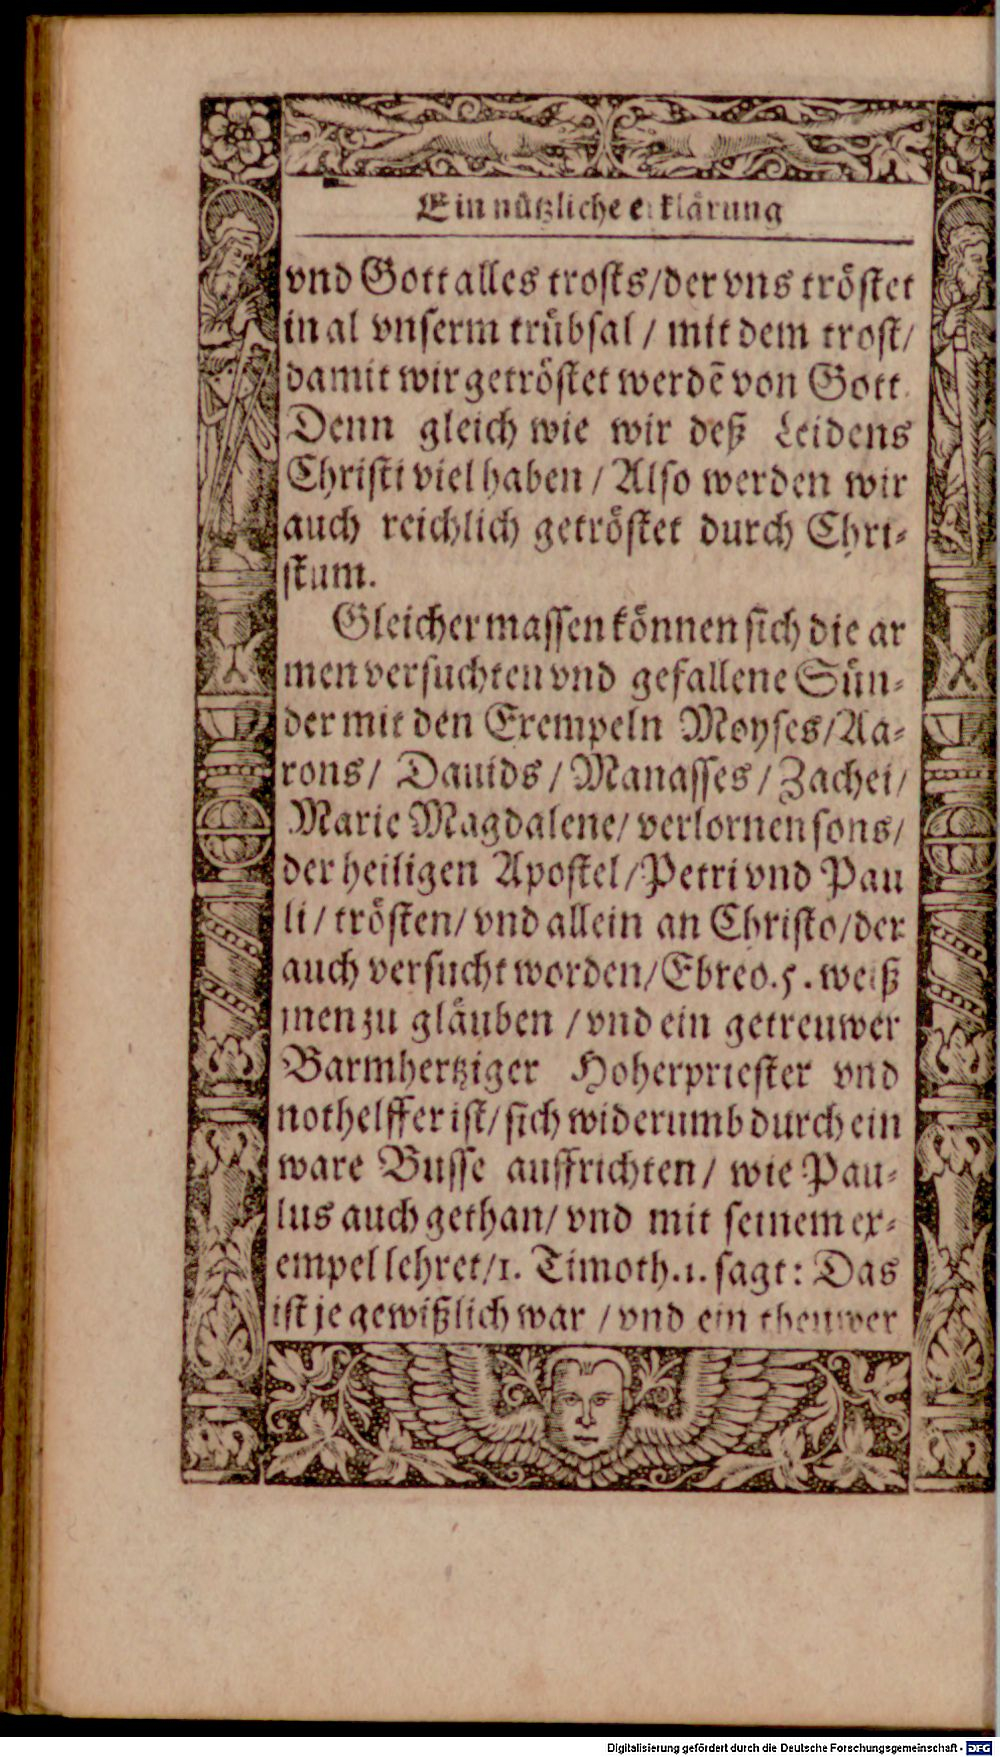 Ein nützliche erklärung
vnd Gott alles trosts/der vns tröstet
in al vnserm trübsal / mit dem trost/
damit wir getröstet werdē von Gott.
Denn gleich wie wir deß Leidens
Christi viel haben / Also werden wir
auch reichlich getröstet durch Chri-
stum.
Gleicher massen können sich die ar
men versuchten vnd gefallene Sün-
der mit den Exempeln Moyses/Aa-
rons/ Dauids / Manasses / Zachei/
Marie Magdalene/ verlornen sons/
der heiligen Apostel/Petri vnd Pau
li/ trösten/ vnd allein an Christo/der
auch versucht worden/Ebreo.5. weiß
men zu gläuben /vnd ein getreuwer
Barmhertziger Hoherpriester vnd
nothelffer ist/ sich widerumb durch ein
ware Busse auffrichten/ wie Pau-
lus auch gethan/ vnd mit seinem ex-
empel lehret/1. Timoth.1. sagt: Das
ist je gewißlich war /vnd ein theuwer
Digitalisierung gefördert durch die Deutsche Forschungsgemeinschaft - DFG